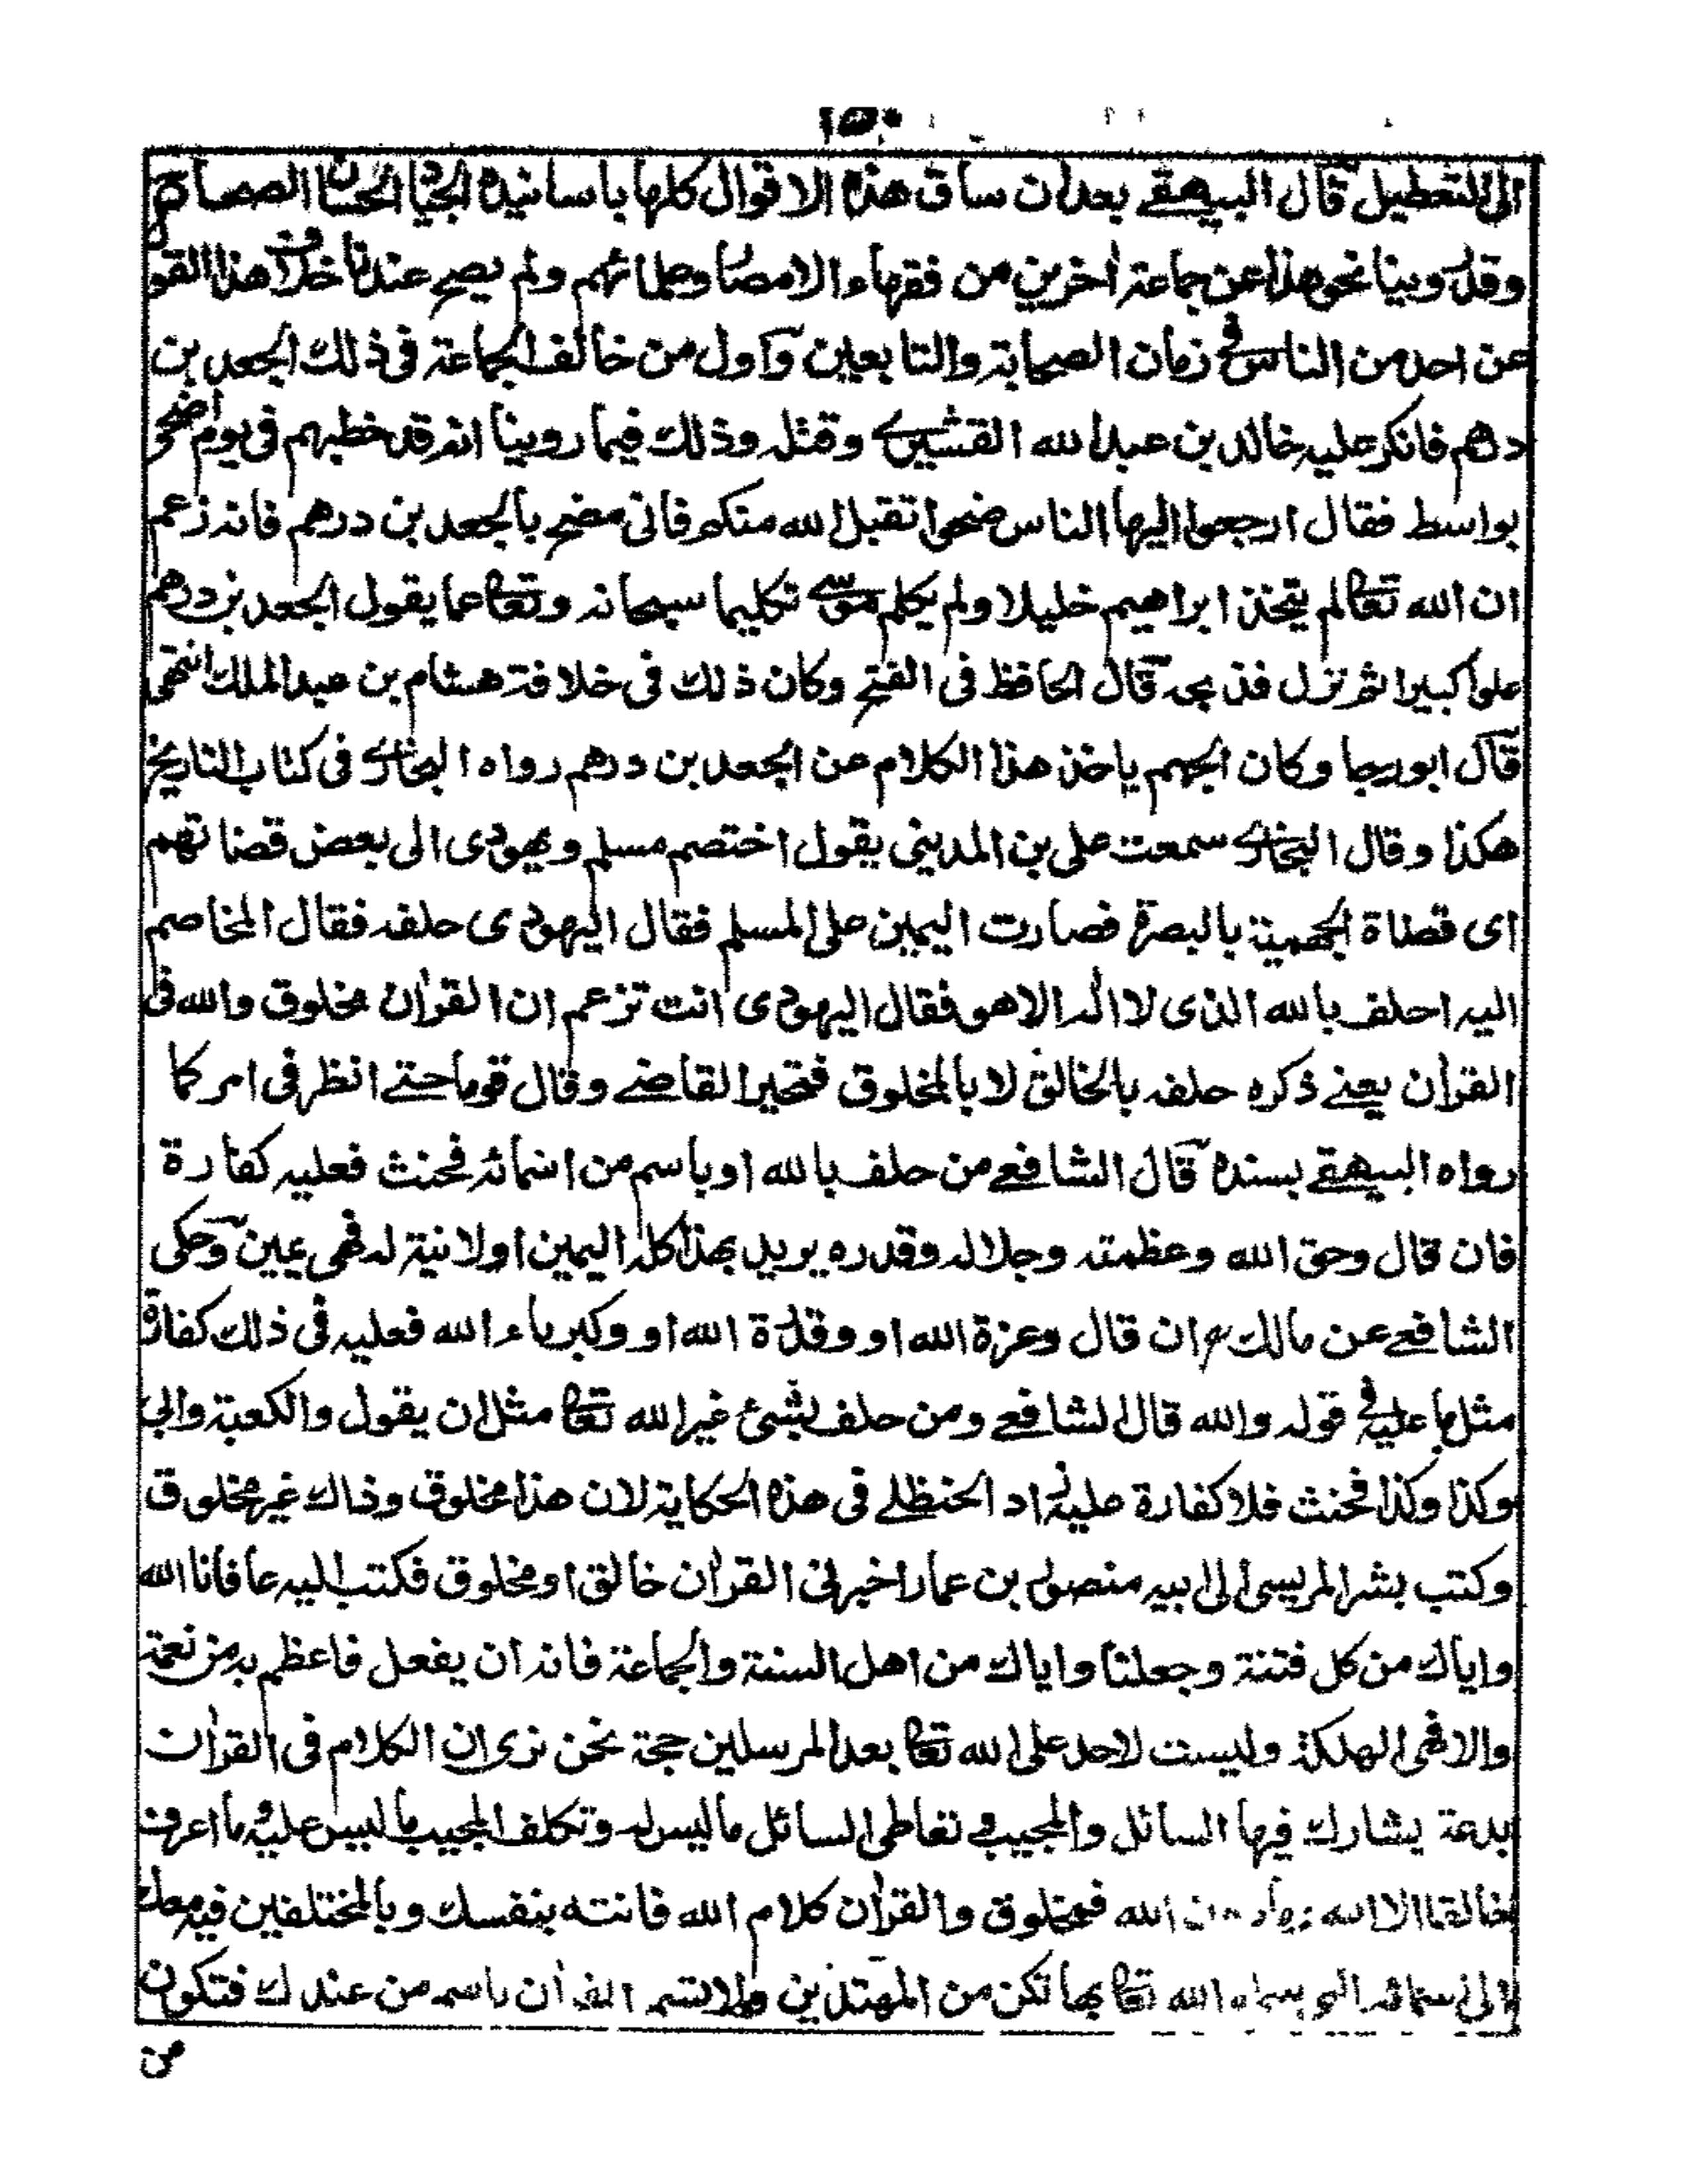 ١٥٠
الى التعطيل قال البيهقے بعد ان ساق هذه الاقوال كلها باسانيده الجياد الحسان الصحاح
وقد روينا نحو هذا عن جماعة اٰخرين من فقهاء الامصار وعلمائهم ولم يصح عندنا خلاف هذا القول
عن احد من الناس فے زمان الصحابة والتابعين واول من خالف الجماعة فى ذلك الجعد بن
درهم فانكر عليه خالد بن عبد الله القشيرے وقتله وذلك فيما روينا انه قد خطبهم فى يوم اضحى
بواسط فقال ارجعوا ايها الناس ضحوا تقبل الله منكم فانى مضح بالجعد بن درهم فانه زعم
ان الله تعالى لم يتخذ ابراهيم خليلا ولم يكلم موسے تكليما سبحانه وتعالى عما يقول الجعد بن درهم
علوا كبيرا ثم نزل فذبحه قال الحافظ فى الفتح وكان ذلك فى خلافة هشام بن عبد الملك انتهى
قال ابو رجا وكان الجهم ياخذ هذا الكلام عن الجعد بن درهم رواه البخارے فى كتاب التاريخ
هكذا وقال البخارے سمعت على بن المدينى يقول اختصم مسلم ويهودى الى بعض قضاتهم
اى قضاة الجهمية بالبصرة فصارت اليمين على المسلم فقال اليهودى حلفه فقال المخاصم
اليه احلف بالله الذى لا اله الا هو فقال اليهودى انت تزعم ان القراٰن مخلوق والله فى
القراٰن يعنے ذكره حلفه بالخالق لا بالمخلوق فتحير القاضے وقال قوما حتے انظر فى امركما
رواه البيهقے بسنده قال الشافعے من حلف بالله او باسم من اسمائه فحنث فعليه كفارة
فان قال وحق الله وعظمته وجلاله وقدره يريد بهذا كله اليمين او لا نية له فهى يمين وحكى
الشافعے عن مالك ان قال وعزة الله او وقدرة الله او وكبرياء الله فعليه فى ذلك كفارة
مثل ما عليه فے قوله والله قال الشافعے ومن حلف بشئ غير الله تعالى مثل ان يقول والكعبة وابى
وكذا وكذا فحنث فلا كفارة عليه زاد الحنظلے فى هذه الحكاية لان هذا مخلوق وذاك غير مخلوق
وكتب بشر المريسى الى ابيه منصور بن عمار اخبرنى القراٰن خالق او مخلوق فكتب اليه عافانا الله
واياك من كل فتنة وجعلنا واياك من اهل السنة والجماعة فانه ان يفعل فاعظم به من نعمة
والا فهى الهلكة وليست لاحد على الله تعالى بعد المرسلين حجة نحن نرى ان الكلام فى القراٰن
بدعة يشارك فيها السائل والمجيب فے تعاطى السائل ما ليس له وتكلف المجيب ما ليس عليه وما اعرف
خالقا الا الله وما دون الله فمخلوق والقراٰن كلام الله فانته بنفسك وبالمختلفين فيه معك
الى اسمائه التى سماه الله تعالى بها تكن من المهتدين ولا تسم القراٰن باسم من عندك فتكون
من